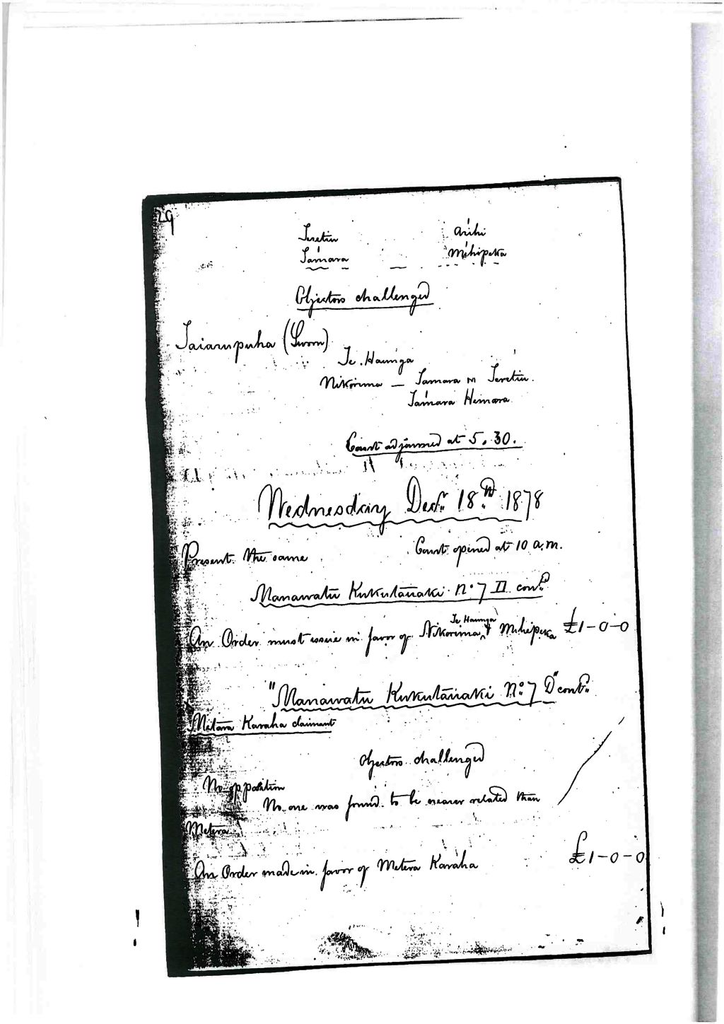 29
Teretiu Arihi
Tamara Mihipeka
Objectors challenged
Taiarupuha (Sworn)
Te Haunga
Nikorima — Tamara m Teretiu
Tamara Hemara
Court adjourned at 5.30.
Wednesday Decr. 18th 1878
Present the same Court opened at 10 a.m.
Manawatu Kukutauaki No. 7 II contd.
An Order must issue in favor of Nikorima, Te Haunga & Mihipeka £1-0-0
"Manawatu Kukutauaki No. 7 D" contd.
Metara Karaha claimant
Objectors challenged
No opposition
No one was found to be nearer related than
Metera
An Order made in favor of Metera Karaha £1-0-0